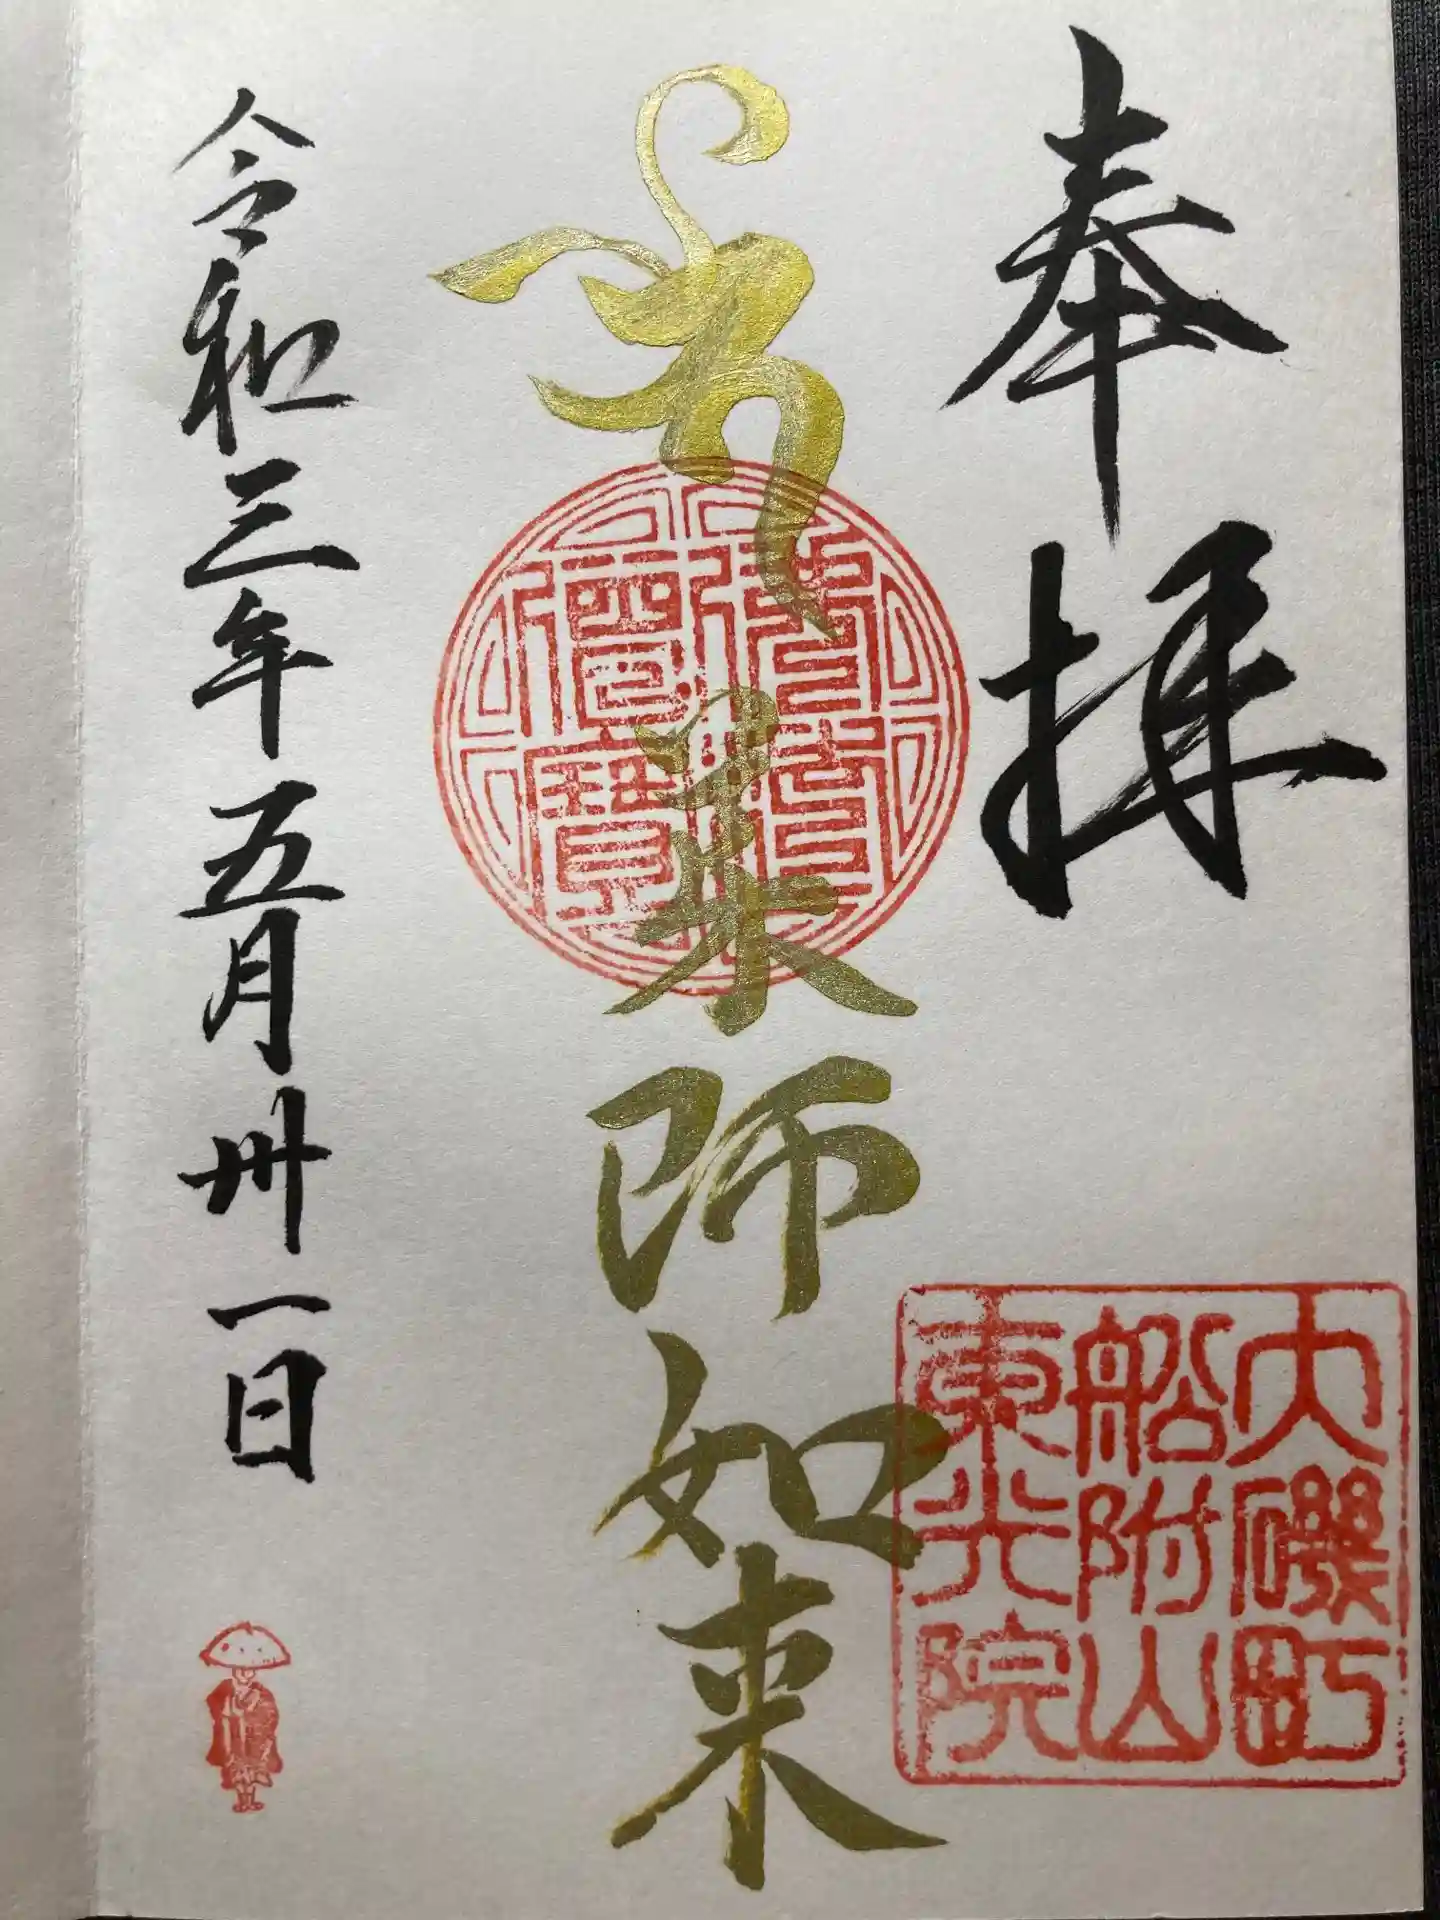 奉拝
薬師如来
佛法
僧寶
大磯町
船附山
東光院
令和三年五月卅一日